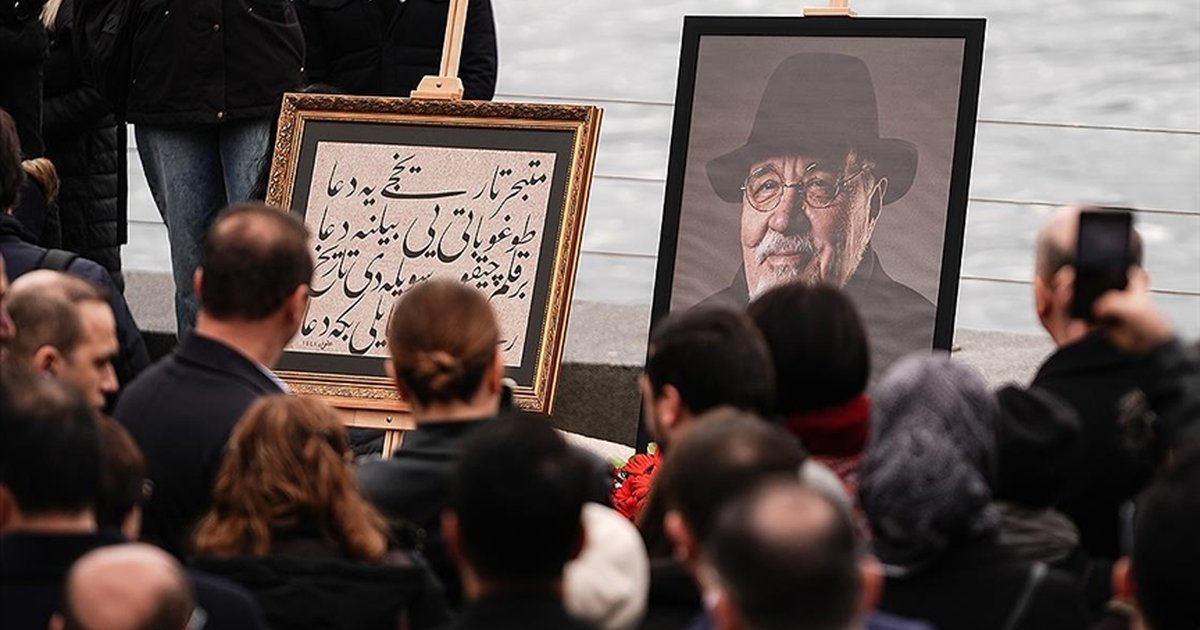 متبحر تاریخجی یه دعا
طوغو باتی یی بیلنه دعا
بر قلم چیقوب سویله دی تاریخ
ایلی بکه دعا